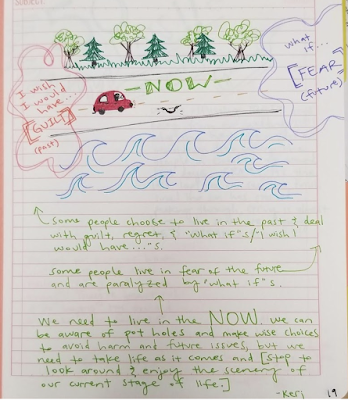 I wish
I would
have...
[GUILT]
(past)
-NOW-
what
if...
[FEAR]
(future)
some people choose to live in the past & deal
with guilt, regret, & "What if"s/"I wish I
would have..."s.
some people live in fear of the future
and are paralyzed by "what if"s.
We need to live in the NOW. We can
be aware of pot holes and make wise choices
to avoid harm and future issues, but we
need to take life as it comes and [stop to
look around & enjoy the scenery of
our current stage of life.]
-Keri
19